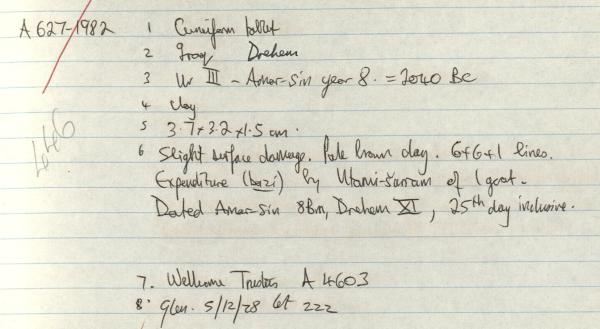 A 627-1982
1 Cuneiform tablet
2 Iraq Drehem
3 Ur III - Amar-Sin year 8. = 2040 BC
4 Clay
5 3.7 x 3.2 x 1.5 cm.
6 Slight surface damage. Pale brown clay. 6+6+1 lines.
Expenditure (bazi) by Utami-šarram of 1 goat.
Dated Amar-Sin 8, Drehem XI, 25th day inclusive.
446
7. Wellcome Trustees A 4603
8. Glen. 5/12/28 lot 222